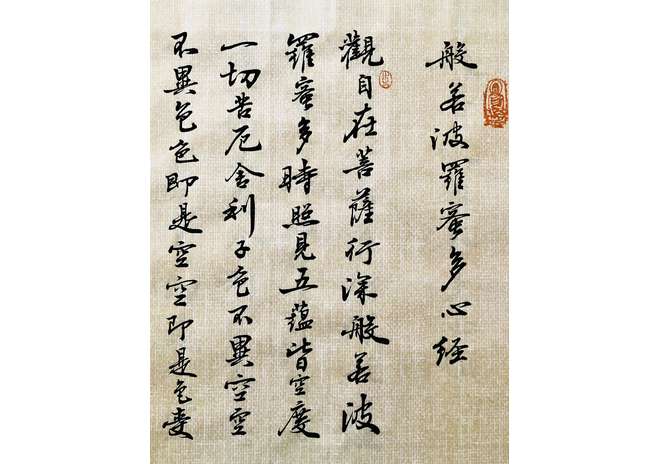 般若波羅蜜多心經
觀自在菩薩行深般若波
羅蜜多時照見五蘊皆空度
一切苦厄舍利子色不異空空
不異色色即是空空即是色受